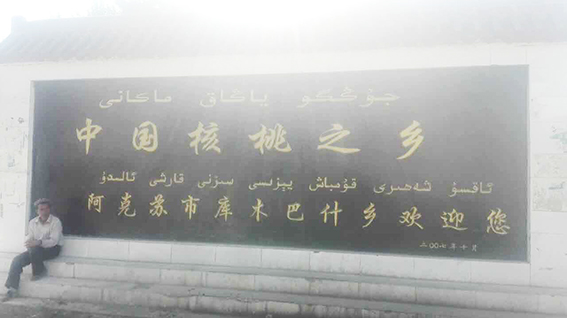 جۇڭگو ياڭاق ماكانى
中国核桃之乡
ئاقسۇ شەھىرى قۇمباش يېزىسى سىزنى قارشى ئالىدۇ
阿克苏市库木巴什乡欢迎您
二〇〇七年十月